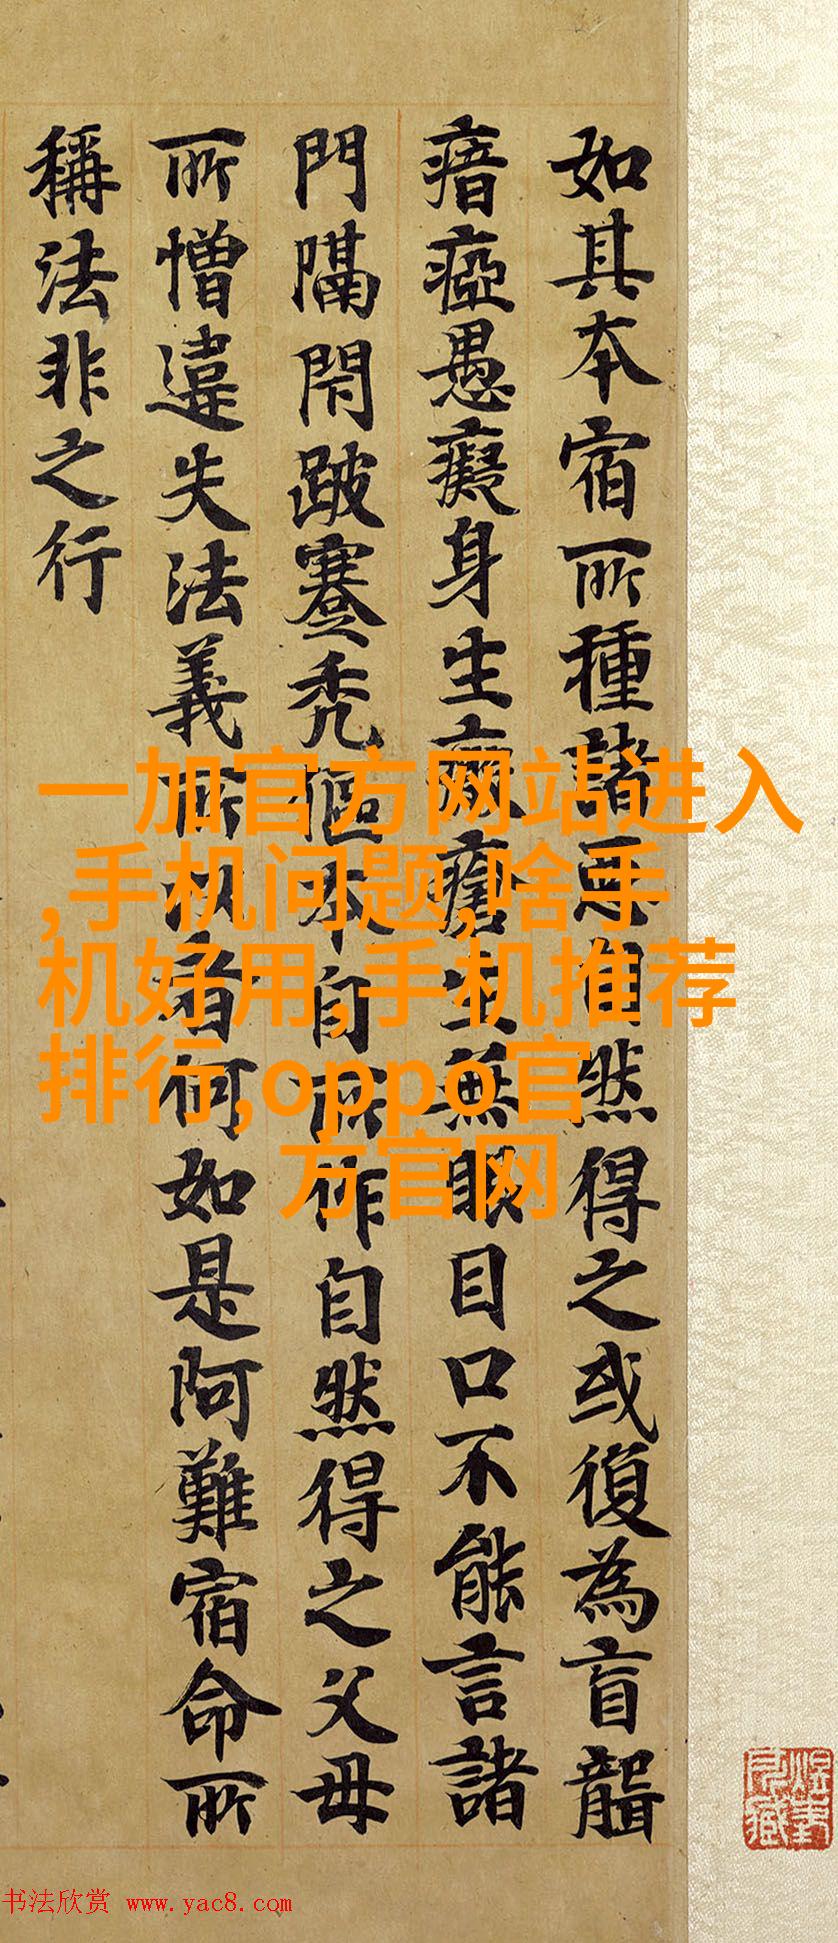 如其本宿所種諸惡自然得之或復為盲聾
瘖瘂愚癡身生瘡生無眼目口不能言諸
門隔閇跛蹇禿傴本自所作自然得之父母
所憎違失法義所以者何如是阿難宿命所
稱法非之行
一加官方网站进入
,手机问题,啥手
机好用,手机推荐
排行,oppo官
方官网
书法欣赏 www.yac8.com